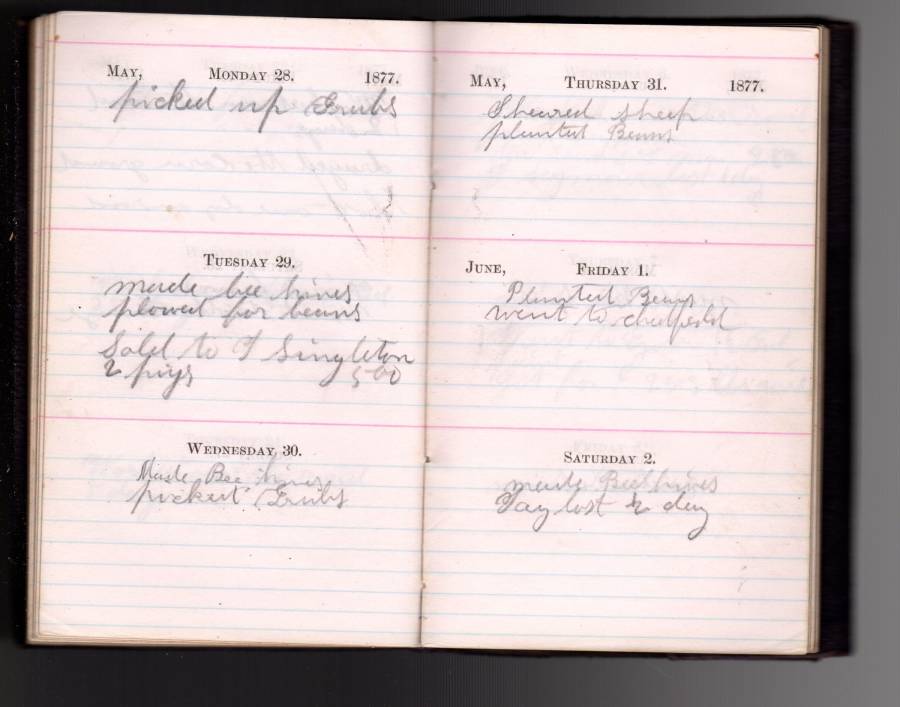 MAY, MONDAY 28. 1877.
picked up Grubs
TUESDAY 29.
made bee hives
plowed for beans
Sold to T Singleton
2 pigs 5-00
WEDNESDAY 30.
Made Bee hives
picked Grubs
MAY, THURSDAY 31. 1877.
Sheared sheep
planted Beans
JUNE, FRIDAY 1.
Planted Beans
went to
SATURDAY 2.
made Bee hives
lost 1/2 day